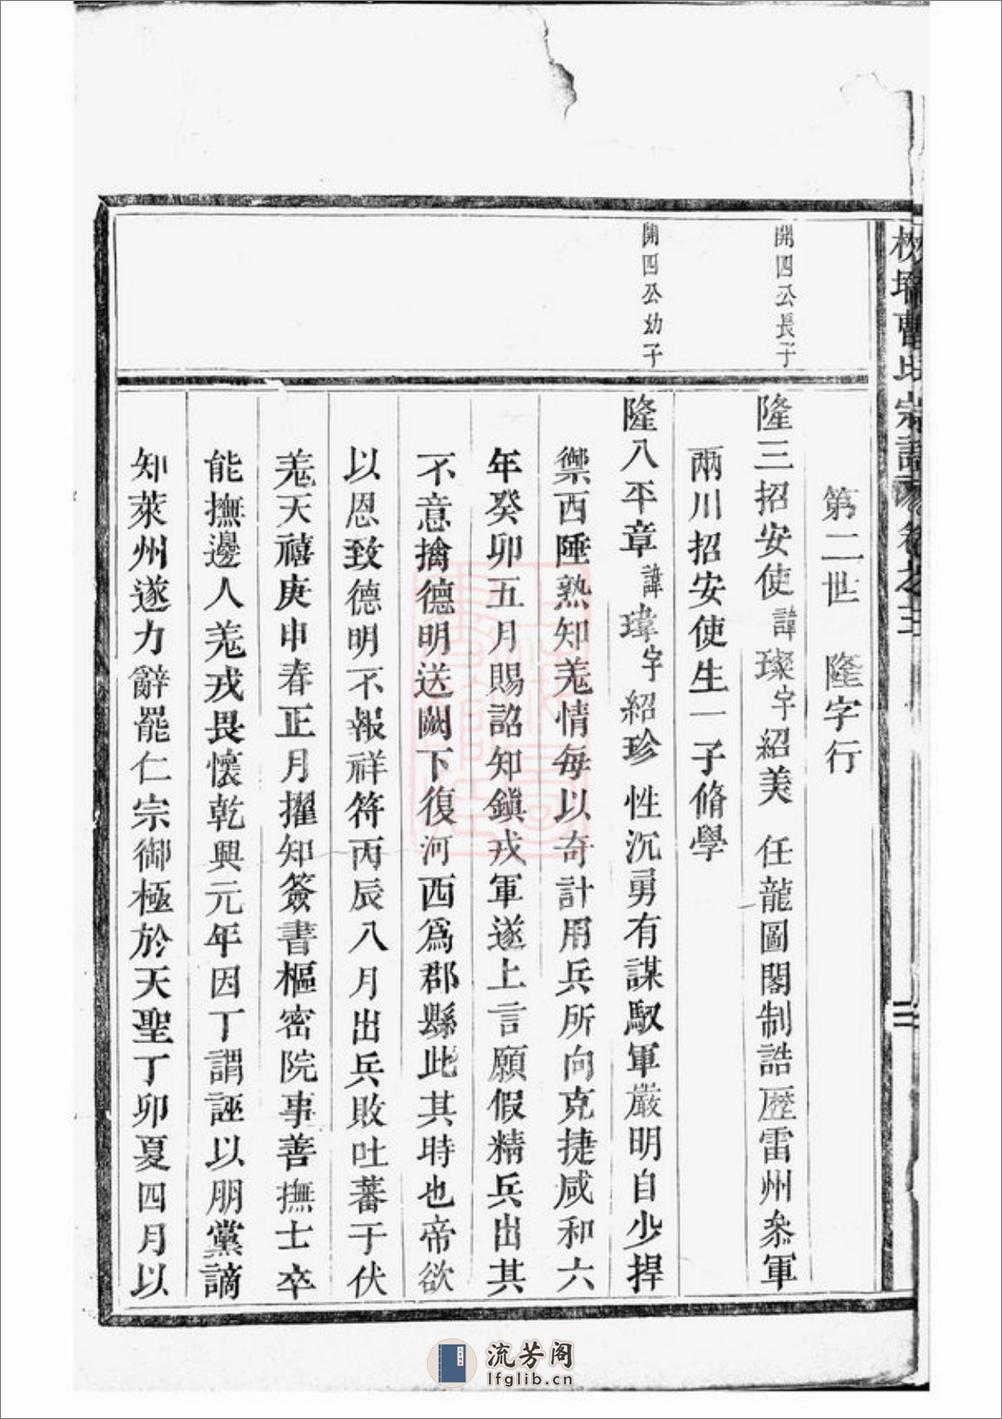 曹氏宗譜
卷之三
三
第二世 隆字行
開四公長子
隆三招安使諱璨字紹美 任龍圖閣制誥歷雷州叅軍
兩川招安使生一子脩學
開四公幼子
隆八平章諱瑋字紹珍 性沉勇有謀馭軍嚴明自少捍
禦西陲熟知羗情每以奇計用兵所向克捷咸和六
年癸卯五月賜詔知鎮戎軍遂上言願假精兵出其
不意擒德明送闕下復河西爲郡縣此其時也帝欲
以恩致德明不報祥符丙辰八月出兵敗吐蕃于伏
羗天禧庚申春正月擢知簽書樞密院事善撫士卒
能撫邊人羗戎畏懷乾興元年因丁謂誣以朋黨謫
知萊州遂力辭罷仁宗御極於天聖丁卯夏四月以
流芳阁
lfglib.cn